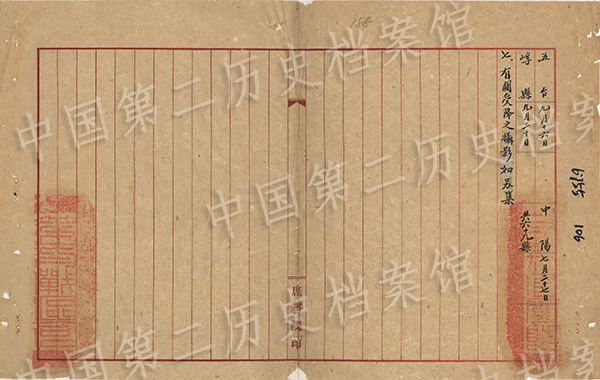 五台九月十六日 中陽七月二十七日
崞縣九月二十日 共六十九縣
七、有關受降之攝影如另集
188
106
中国第二历史档案馆
中国第二历史档案馆
中国第二历史档案馆